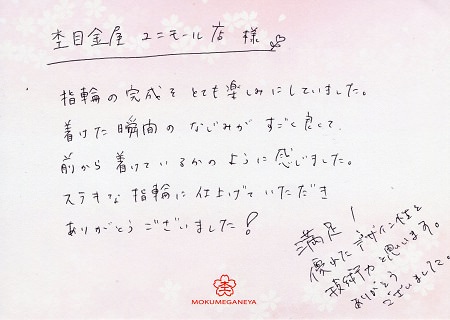 杢目金屋 ユニモール店 様
指輪の完成をとても楽しみにしていました。
着けた瞬間のなじみがすごく良くて、
前から着けているかのように感じました。
ステキな指輪に仕上げていただき
ありがとうございました!
満足!
優れたデザイン性と
技術力と思います。
ありがとう
ございました。
MOKUMEGANEYA